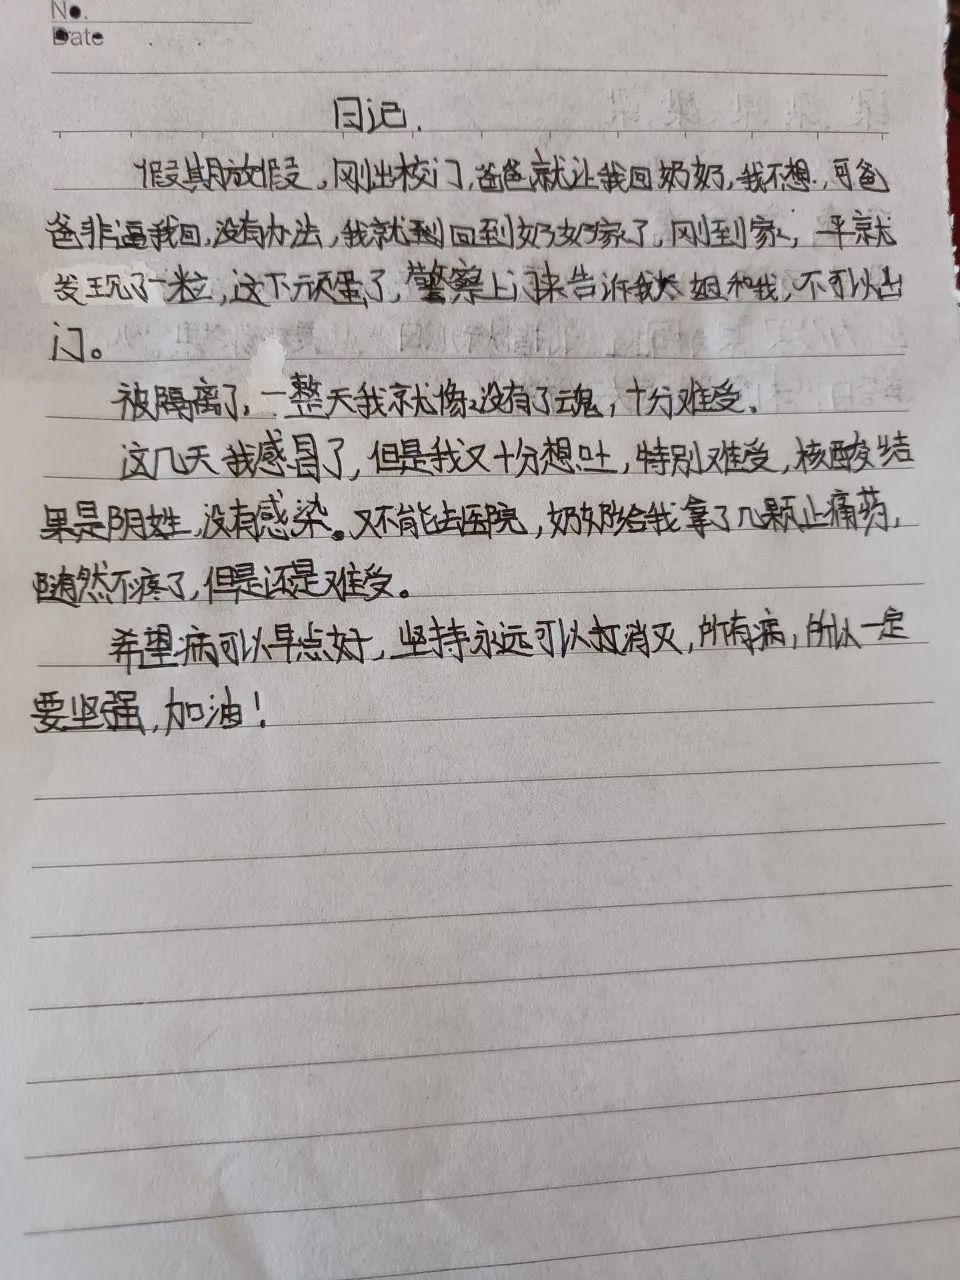 No.
Date
日记.
假期放假，刚出校门，爸爸就让我回奶奶，我不想，可爸
爸非逼我回，没有办法，我就到回到奶奶家了，刚到家，平就
发现了一粒，这下完蛋了，警察上门来告诉我大姐和我，不可以出
门。
被隔离了，一整天我就像没有了魂，十分难受。
这几天我感冒了，但是我又十分想吐，特别难受，核酸结
果是阴姓，没有感染。又不能去医院，奶奶给我拿了几颗止痛药，
随然不疼了，但是还是难受。
希望病可以早点好，坚持永远可以打消灭，所有病，所以一定
要坚强，加油！